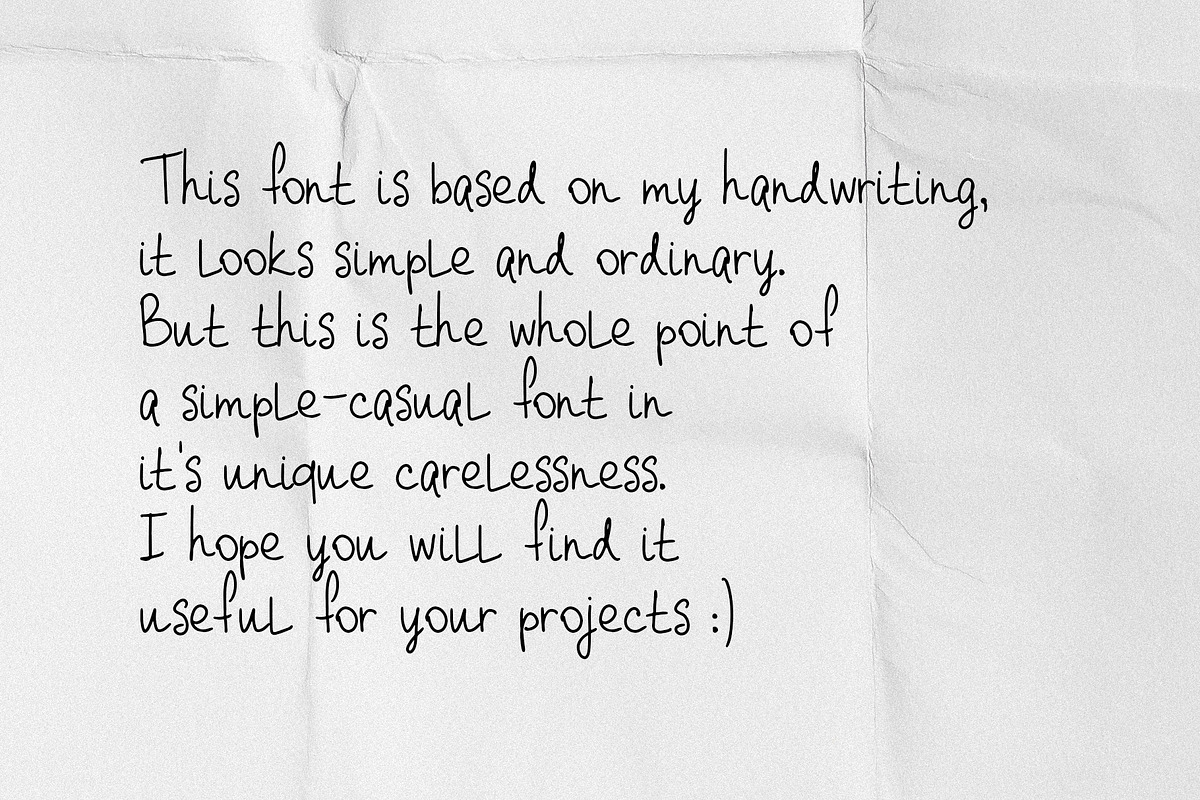 This font is based on my handwriting,
it looks simple and ordinary.
But this is the whole point of
a simple-casual font in
it's unique carelessness.
I hope you will find it
useful for your projects :)